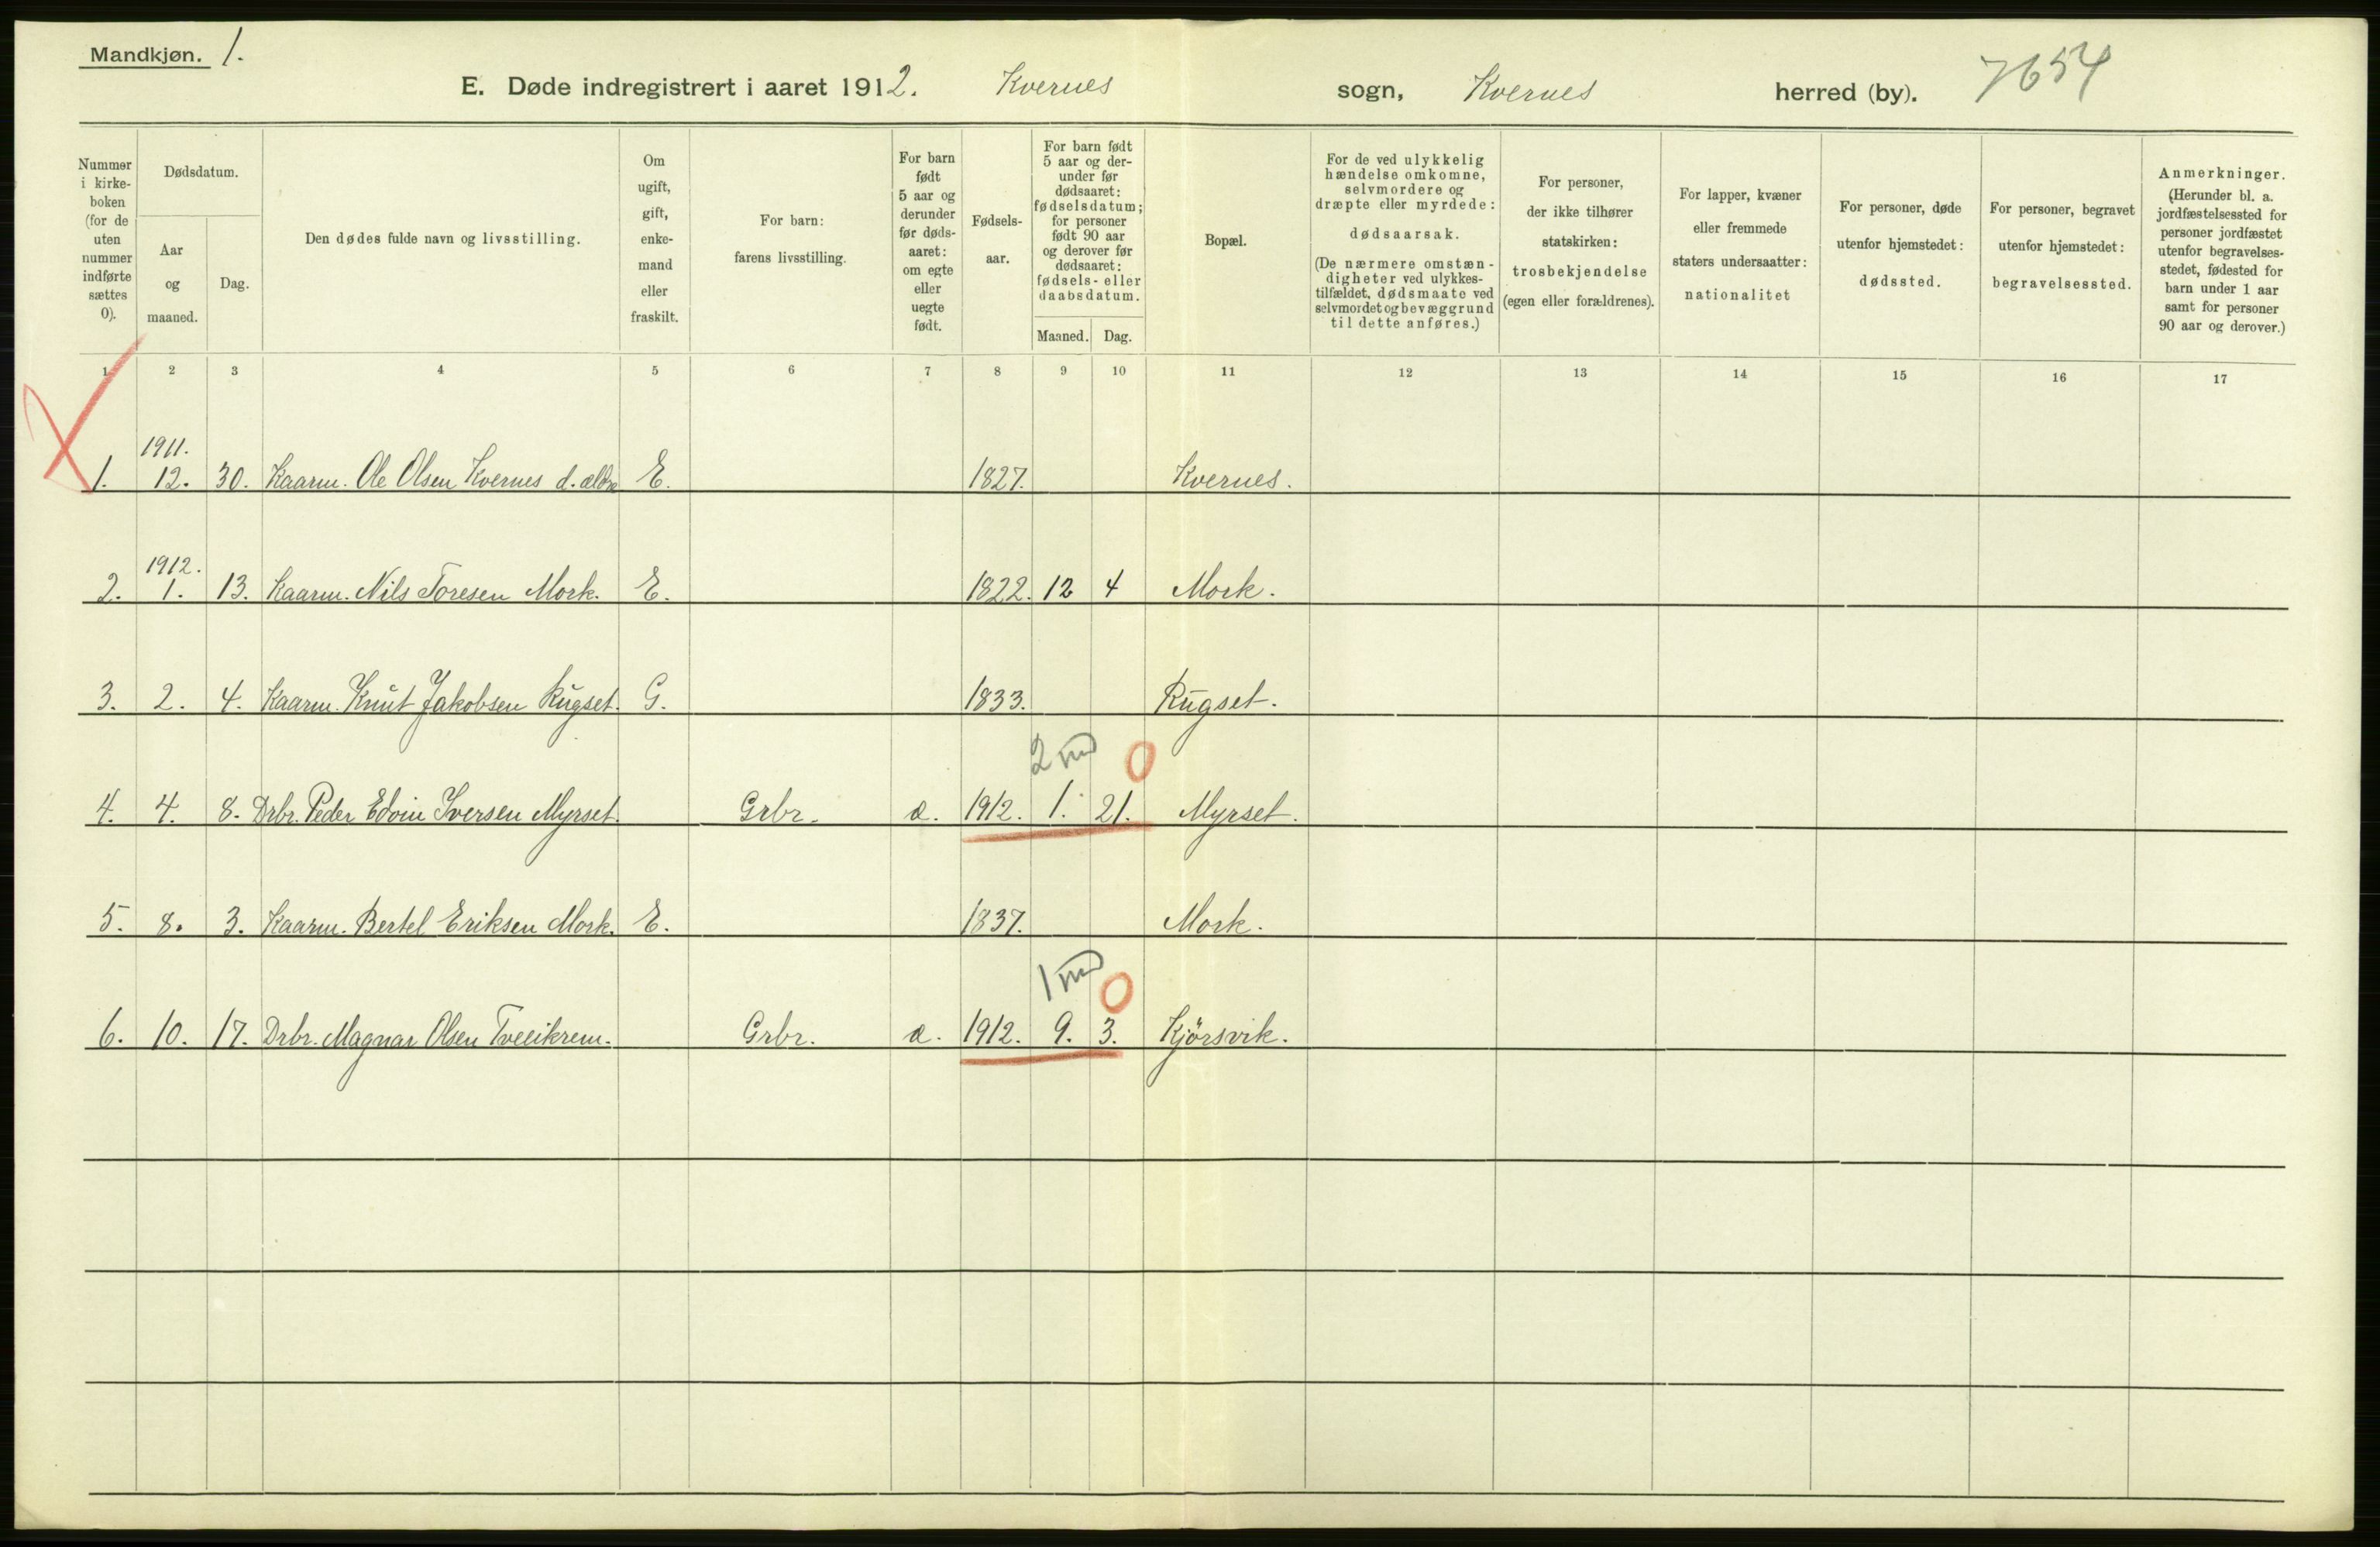 Mandkjøn. 1.
E. Døde indregistrert i aaret 1912. Kvernes sogn, Kvernes herred (by). 7654
Nummer i kirke- boken (for de uten nummer indførte sættes 0).
Dødsdatum.
Aar og maaned.
Dag.
Den dødes fulde navn og livsstilling.
Om ugift, gift, enke- mand eller fraskilt.
For barn: farens livsstilling.
For barn født 5 aar og derunder før døds- aaret: om egte eller uegte født.
Fødsels- aar.
For barn født 5 aar og der- under før dødsaaret: fødselsdatum; for personer født 90 aar og derover før dødsaaret: fødsels- eller daabsdatum.
Maaned. Dag.
Bopæl.
For de ved ulykkelig hændelse omkomne, selvmordere og dræpte eller myrdede: dødsaarsak. (De nærmere omstæn- digheter ved ulykkes- tilfældet, dødsmaate ved selvmordet og bevæggrund til dette anføres.)
For personer, der ikke tilhører statskirken: trosbekjendelse (egen eller forældrenes).
For lapper, kvæner eller fremmede staters undersaatter: nationalitet
For personer, døde utenfor hjemstedet: dødssted.
For personer, begravet utenfor hjemstedet: begravelsessted.
Anmerkninger. (Herunder bl. a. jordfæstelsessted for personer jordfæstet utenfor begravelses- stedet, fødested for barn under 1 aar samt for personer 90 aar og derover.)
1 2 3 4 5 6 7 8 9 10 11 12 13 14 15 16 17
1911.
1. 12. 30. Kaarm. Ole Olsen Kvernes d. ældre E. 1827. Kvernes.
1912.
2. 1. 13. Kaarm. Nils Toresen Mork. E. 1822. 12 4 Mork.
3. 2. 4. Kaarm. Knut Jakobsen Rugset. G. 1833. Rugset.
2 md 0
4. 4. 8. Drbr. Peder Edvin Iversen Myrset. Grbr. æ. 1912. 1. 21. Myrset.
5. 8. 3. Kaarm. Bertel Eriksen Mork. E. 1837. Mork.
1 md 0
6. 10. 17. Drbr. Magnar Olsen Tveeikrem. Grbr. æ. 1912. 9. 3. Kjörsvik.